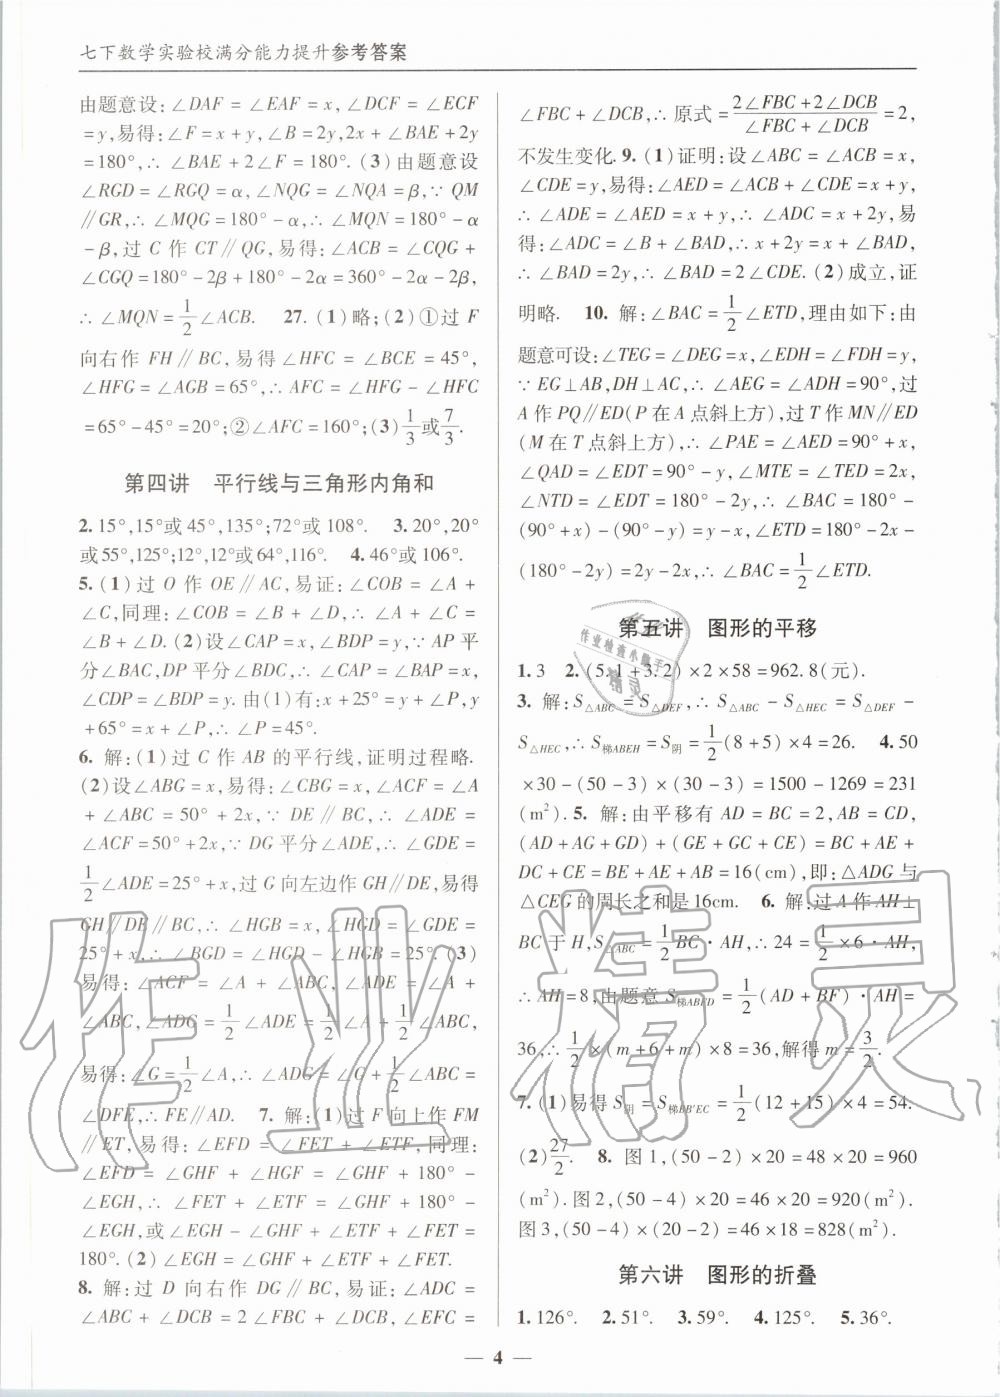 七下数学实验校满分能力提升参考答案
由题意设:∠DAF=∠EAF=x,∠DCF=∠ECF
=y,易得:∠F=x+y,∠B=2y,2x+∠BAE+2y
=180°,∴∠BAE+2∠F=180°.(3)由题意设
∠RGD=∠RGQ=α,∠NQG=∠NQA=β,∵QM
∥GR,∴∠MQG=180°-α,∴∠MQN=180°-α
-β,过C作CT∥QG,易得:∠ACB=∠CQG+
∠CGQ=180°-2β+180°-2α=360°-2α-2β,
∴∠MQN=1/2∠ACB. 27.(1)略;(2)①过F
向右作FH∥BC,易得∠HFC=∠BCE=45°,
∠HFG=∠AGB=65°,∴AFC=∠HFG-∠HFC
=65°-45°=20°;②∠AFC=160°;(3)1/3或7/3.
第四讲 平行线与三角形内角和
2.15°,15°或45°,135°;72°或108°. 3.20°,20°
或55°,125°;12°,12°或64°,116°. 4.46°或106°.
5.(1)过O作OE∥AC,易证:∠COB=∠A+
∠C,同理:∠COB=∠B+∠D,∴∠A+∠C=
∠B+∠D.(2)设∠CAP=x,∠BDP=y,∵AP平
分∠BAC,DP平分∠BDC,∴∠CAP=∠BAP=x,
∠CDP=∠BDP=y.由(1)有:x+25°=y+∠P,y
+65°=x+∠P,∴∠P=45°.
6.解:(1)过C作AB的平行线,证明过程略.
(2)设∠ABG=x,易得:∠CBG=x,∠ACF=∠A
+∠ABC=50°+2x,∵DE∥BC,∴∠ADE=
∠ACF=50°+2x,∵DG平分∠ADE,∴∠GDE=
1/2∠ADE=25°+x,过G向左边作GH∥DE,易得
GH∥DE∥BC,∴∠HGB=x,∠HGD=∠GDE=
25°+x,∴∠BGD=∠HGD-∠HGB=25°.(3)
易得:∠ACF=∠A+∠ABC,∠ADE=∠A+
∠ABC,∠ADG=1/2∠ADE=1/2∠A+1/2∠ABC,
易得:∠G=1/2∠A,∴∠ADG=∠G+1/2∠ABC=
∠DFE,∴FE∥AD. 7.解:(1)过F向上作FM
∥ET,易得:∠EFD=∠FET+∠ETF,同理:
∠EFD=∠GHF+∠HGF=∠GHF+180°-
∠EGH,∴∠FET+∠ETF=∠GHF+180°-
∠EGH,或∠EGH-∠GHF+∠ETF+∠FET=
180°.(2)∠EGH=∠GHF+∠ETF+∠FET.
8.解:过D向右作DG∥BC,易证:∠ADC=
∠ABC+∠DCB=2∠FBC+∠DCB,∠EFC=
∠FBC+∠DCB,∴原式=(2∠FBC+2∠DCB)/(∠FBC+∠DCB)=2,
不发生变化.9.(1)证明:设∠ABC=∠ACB=x,
∠CDE=y,易得:∠AED=∠ACB+∠CDE=x+y,
∴∠ADE=∠AED=x+y,∴∠ADC=x+2y,易
得:∠ADC=∠B+∠BAD,∴x+2y=x+∠BAD,
∴∠BAD=2y,∴∠BAD=2∠CDE.(2)成立,证
明略. 10.解:∠BAC=1/2∠ETD,理由如下:由
题意可设:∠TEG=∠DEG=x,∠EDH=∠FDH=y,
∵EG⊥AB,DH⊥AC,∴∠AEG=∠ADH=90°,过
A作PQ∥ED(P在A点斜上方),过T作MN∥ED
(M在T点斜上方),∴∠PAE=∠AED=90°+x,
∠QAD=∠EDT=90°-y,∠MTE=∠TED=2x,
∠NTD=∠EDT=180°-2y,∴∠BAC=180°-
(90°+x)-(90°-y)=y-x,∠ETD=180°-2x-
(180°-2y)=2y-2x,∴∠BAC=1/2∠ETD.
第五讲 图形的平移
1.3 2.(5.1+3.2)×2×58=962.8(元).
3.解:S△ABC=S△DEF,∴S△ABC-S△HEC=S△DEF-
S△HEC,∴S梯ABEH=S阴=1/2(8+5)×4=26. 4.50
×30-(50-3)×(30-3)=1500-1269=231
(m²).5.解:由平移有AD=BC=2,AB=CD,
(AD+AG+GD)+(GE+GC+CE)=BC+AE+
DC+CE=BE+AE+AB=16(cm),即:△ADG与
△CEG的周长之和是16cm. 6.解:过A作AH⊥
BC于H,S△ABC=1/2BC·AH,∴24=1/2×6·AH,
∴AH=8,由题意S梯ABFD=1/2(AD+BF)·AH=
36,∴1/2×(m+6+m)×8=36,解得m=3/2.
7.(1)易得S阴=S梯BB′EC=1/2(12+15)×4=54.
(2)27/2. 8.图1,(50-2)×20=48×20=960
(m²).图2,(50-4)×20=46×20=920(m²).
图3,(50-4)×(20-2)=46×18=828(m²).
第六讲 图形的折叠
1.126°. 2.51°. 3.59°. 4.125°. 5.36°.
— 4 —
作业精灵
作业检查小助手
精灵